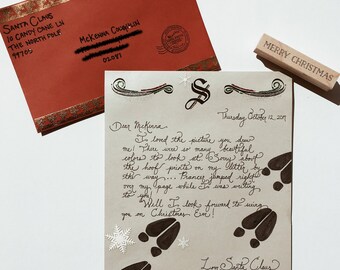 Santa Claus
10 Candy Cane Ln
The North Pole
99705
McKenna
02081
MERRY CHRISTMAS
S
Thursday October 12, 2017
Dear McKenna,
I loved the picture you drew
me! There were so many beautiful
colors to look at! Sorry about
the hoof prints on my letter
this way... Prancer jumped right
on my page while I was writing
to you!
Well I look forward to seeing
you on Christmas Eve!
Love Santa Claus